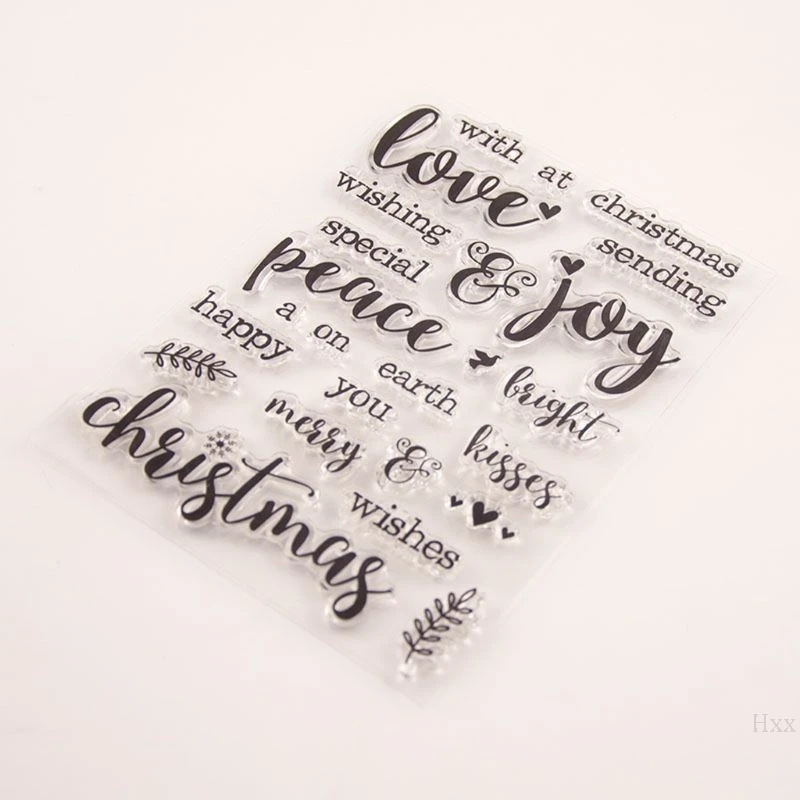 with at
love
christmas
wishing
sending
special
&
joy
peace
a on
happy
earth
bright
you
merry
&
kisses
christmas
wishes
Hxx